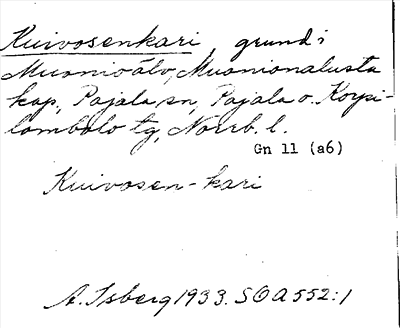 Kuivosenkari, grund i
Muonioälv, Muonionalusta
kap, Pajala sn, Pajala o. Korpi-
lombolo tg, Norrb. l.
Gn 11 (a6)
Kuivosen-kari
A. Isberg 1933. SOA 552:1